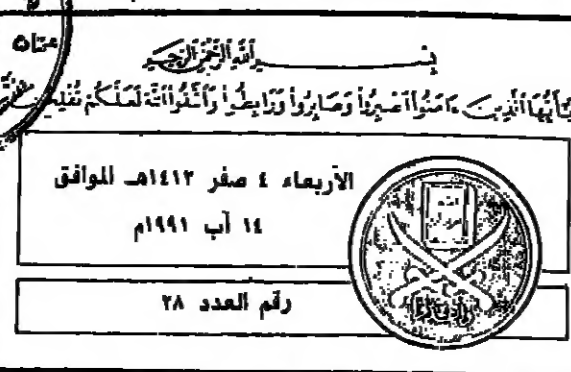 عمان
بسم الله الرحمن الرحيم
يَٰٓأَيُّهَا ٱلَّذِينَ ءَامَنُوا۟ ٱصْبِرُوا۟ وَصَابِرُوا۟ وَرَابِطُوا۟ وَٱتَّقُوا۟ ٱللَّهَ لَعَلَّكُمْ تُفْلِحُونَ
الأربعاء ٤ صفر ١٤١٢هـ الموافق
١٤ آب ١٩٩١م
رقم العدد ٢٨
وأعدوا